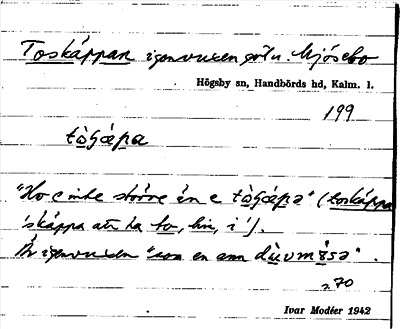 Toskäppan igenvuxen göl u. Mjösebo
Högsby sn, Handbörds hd, Kalm. l.
199
"Ho e inte större än e (toskäppa
'skäppa att ha to, lin, i').
Är igenvuxen "som en ann
270
Ivar Modéer 1942